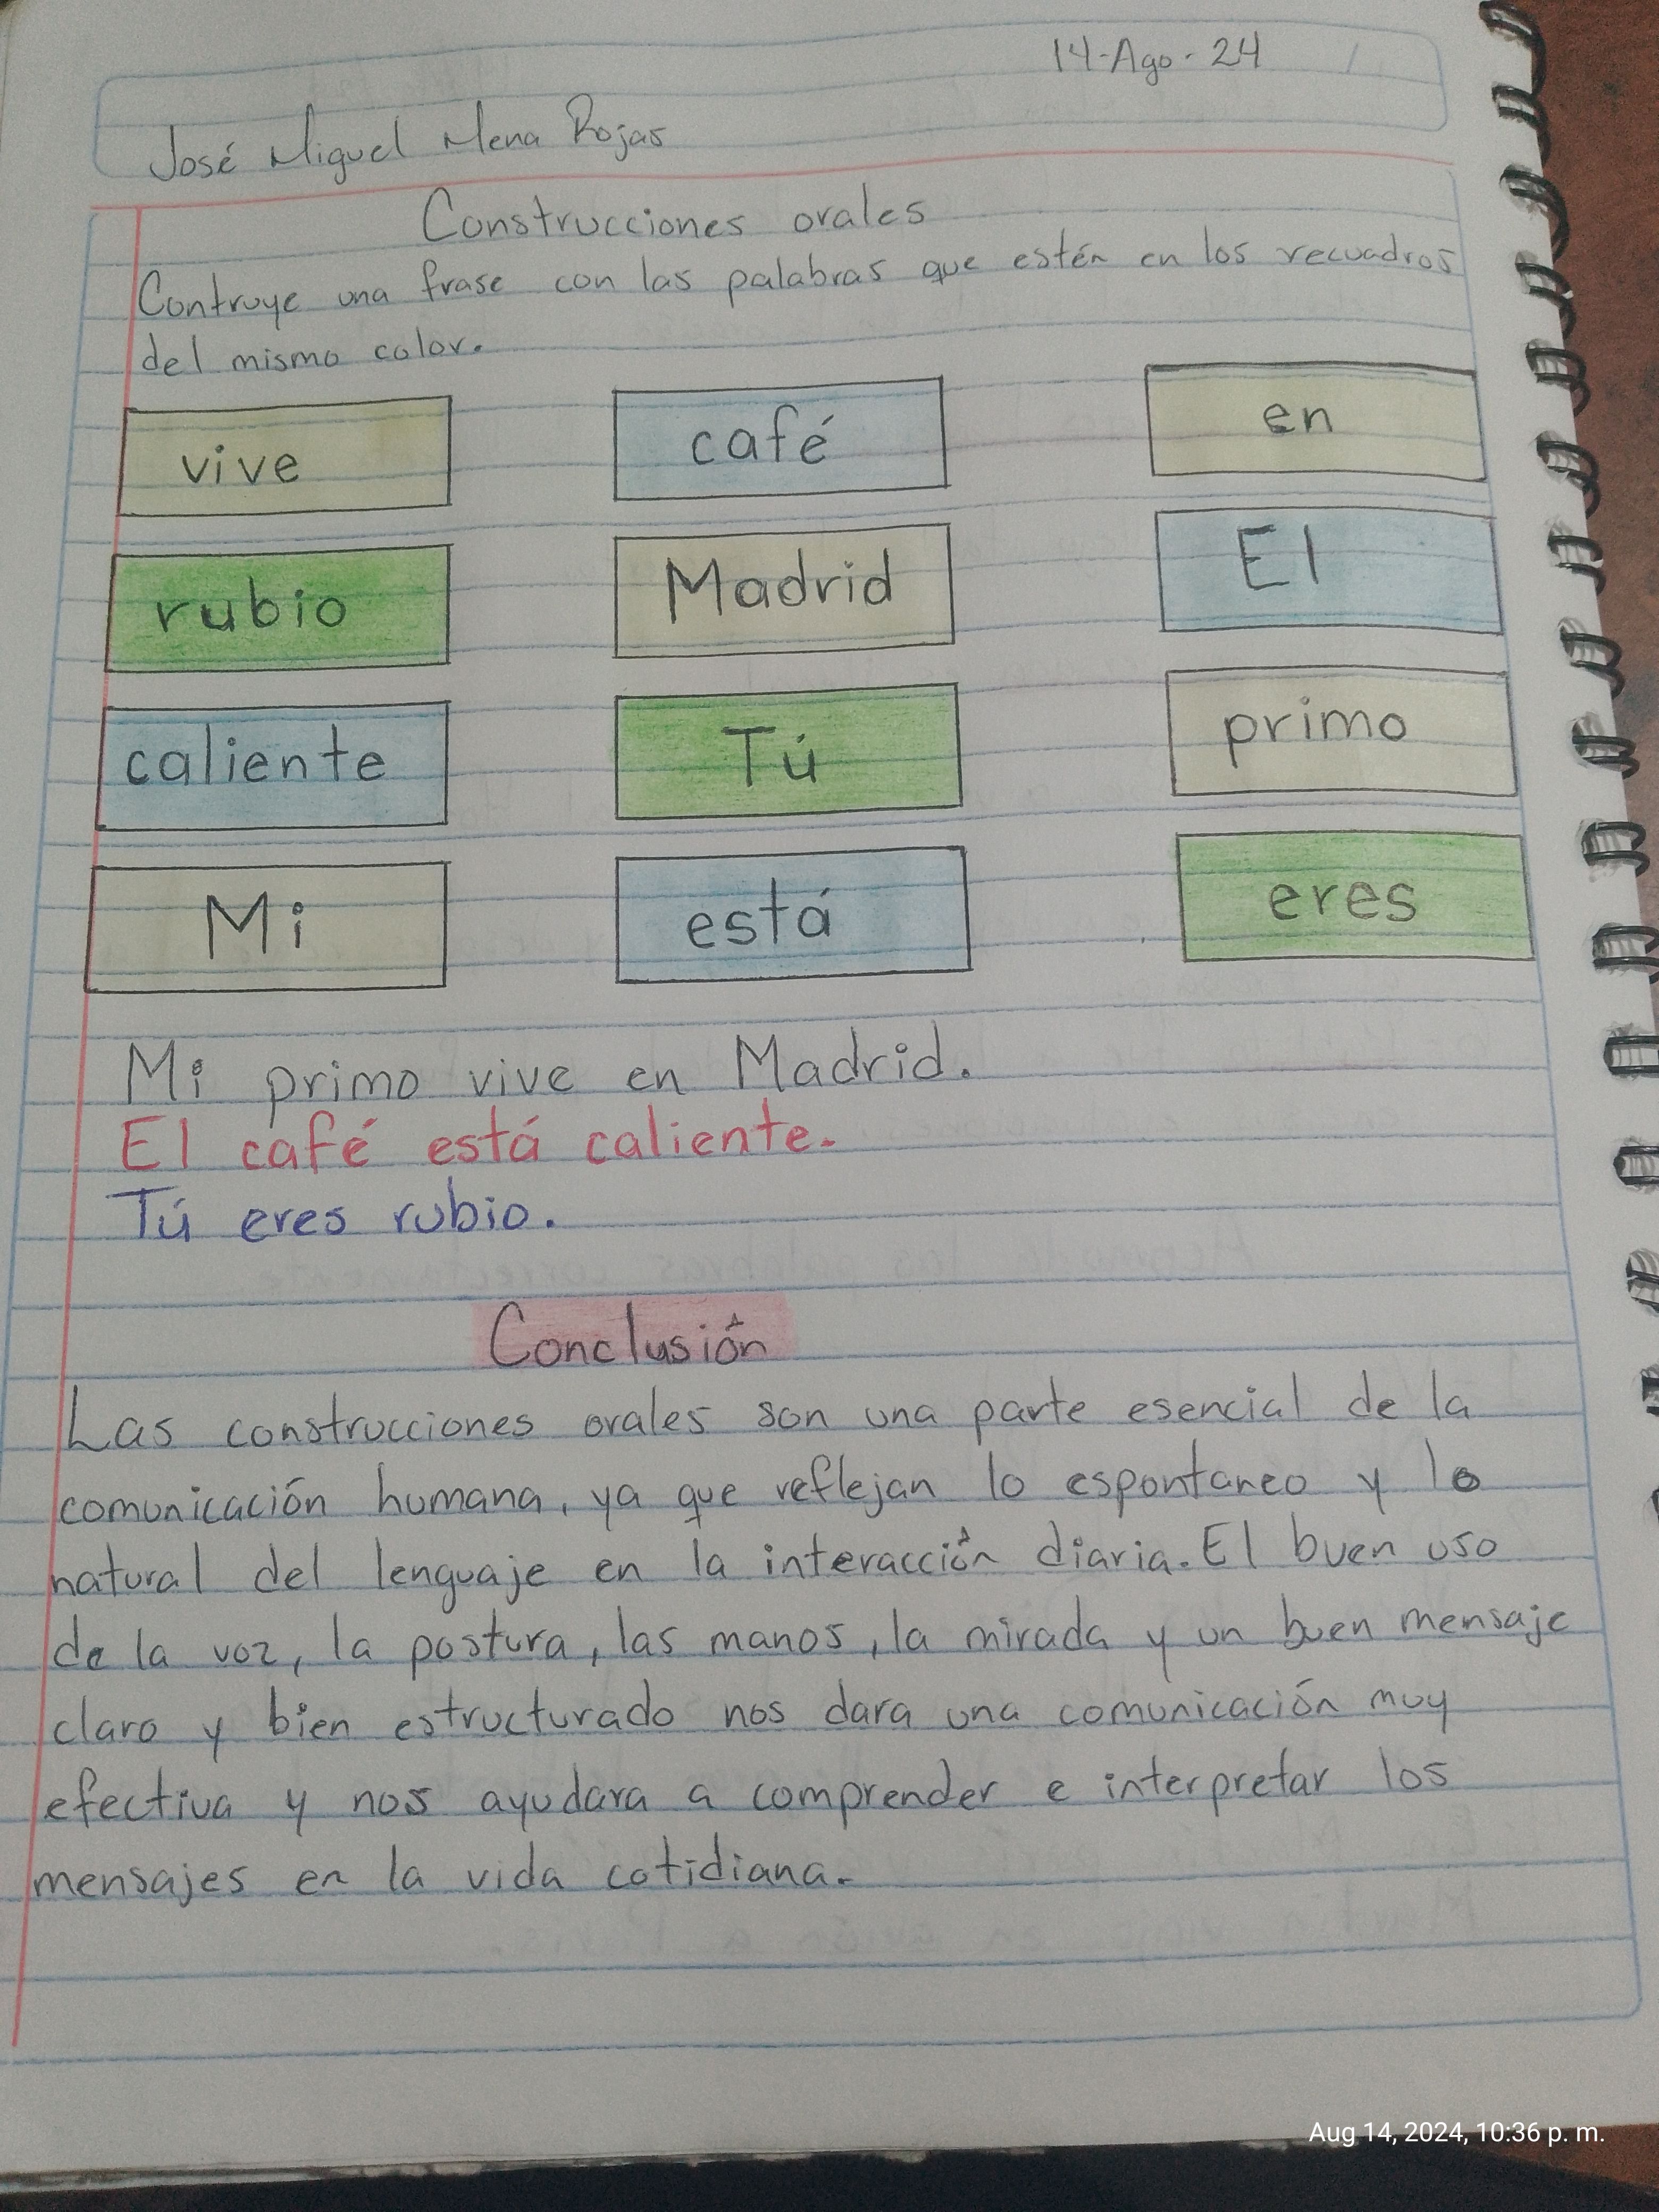 14-Ago-24
José Miguel Mena Rojas
Construcciones orales
Contruye una frase con las palabras que estén en los recuadros
del mismo color.
vive café en
rubio Madrid El
caliente Tú primo
Mi está eres
Mi primo vive en Madrid.
El café está caliente.
Tú eres rubio.
Conclusión
Las construcciones orales son una parte esencial de la
comunicación humana, ya que reflejan lo espontaneo y lo
natural del lenguaje en la interacción diaria. El buen uso
de la voz, la postura, las manos, la mirada y un buen mensaje
claro y bien estructurado nos dara una comunicación muy
efectiva y nos ayudara a comprender e interpretar los
mensajes en la vida cotidiana.
Aug 14, 2024, 10:36 p. m.